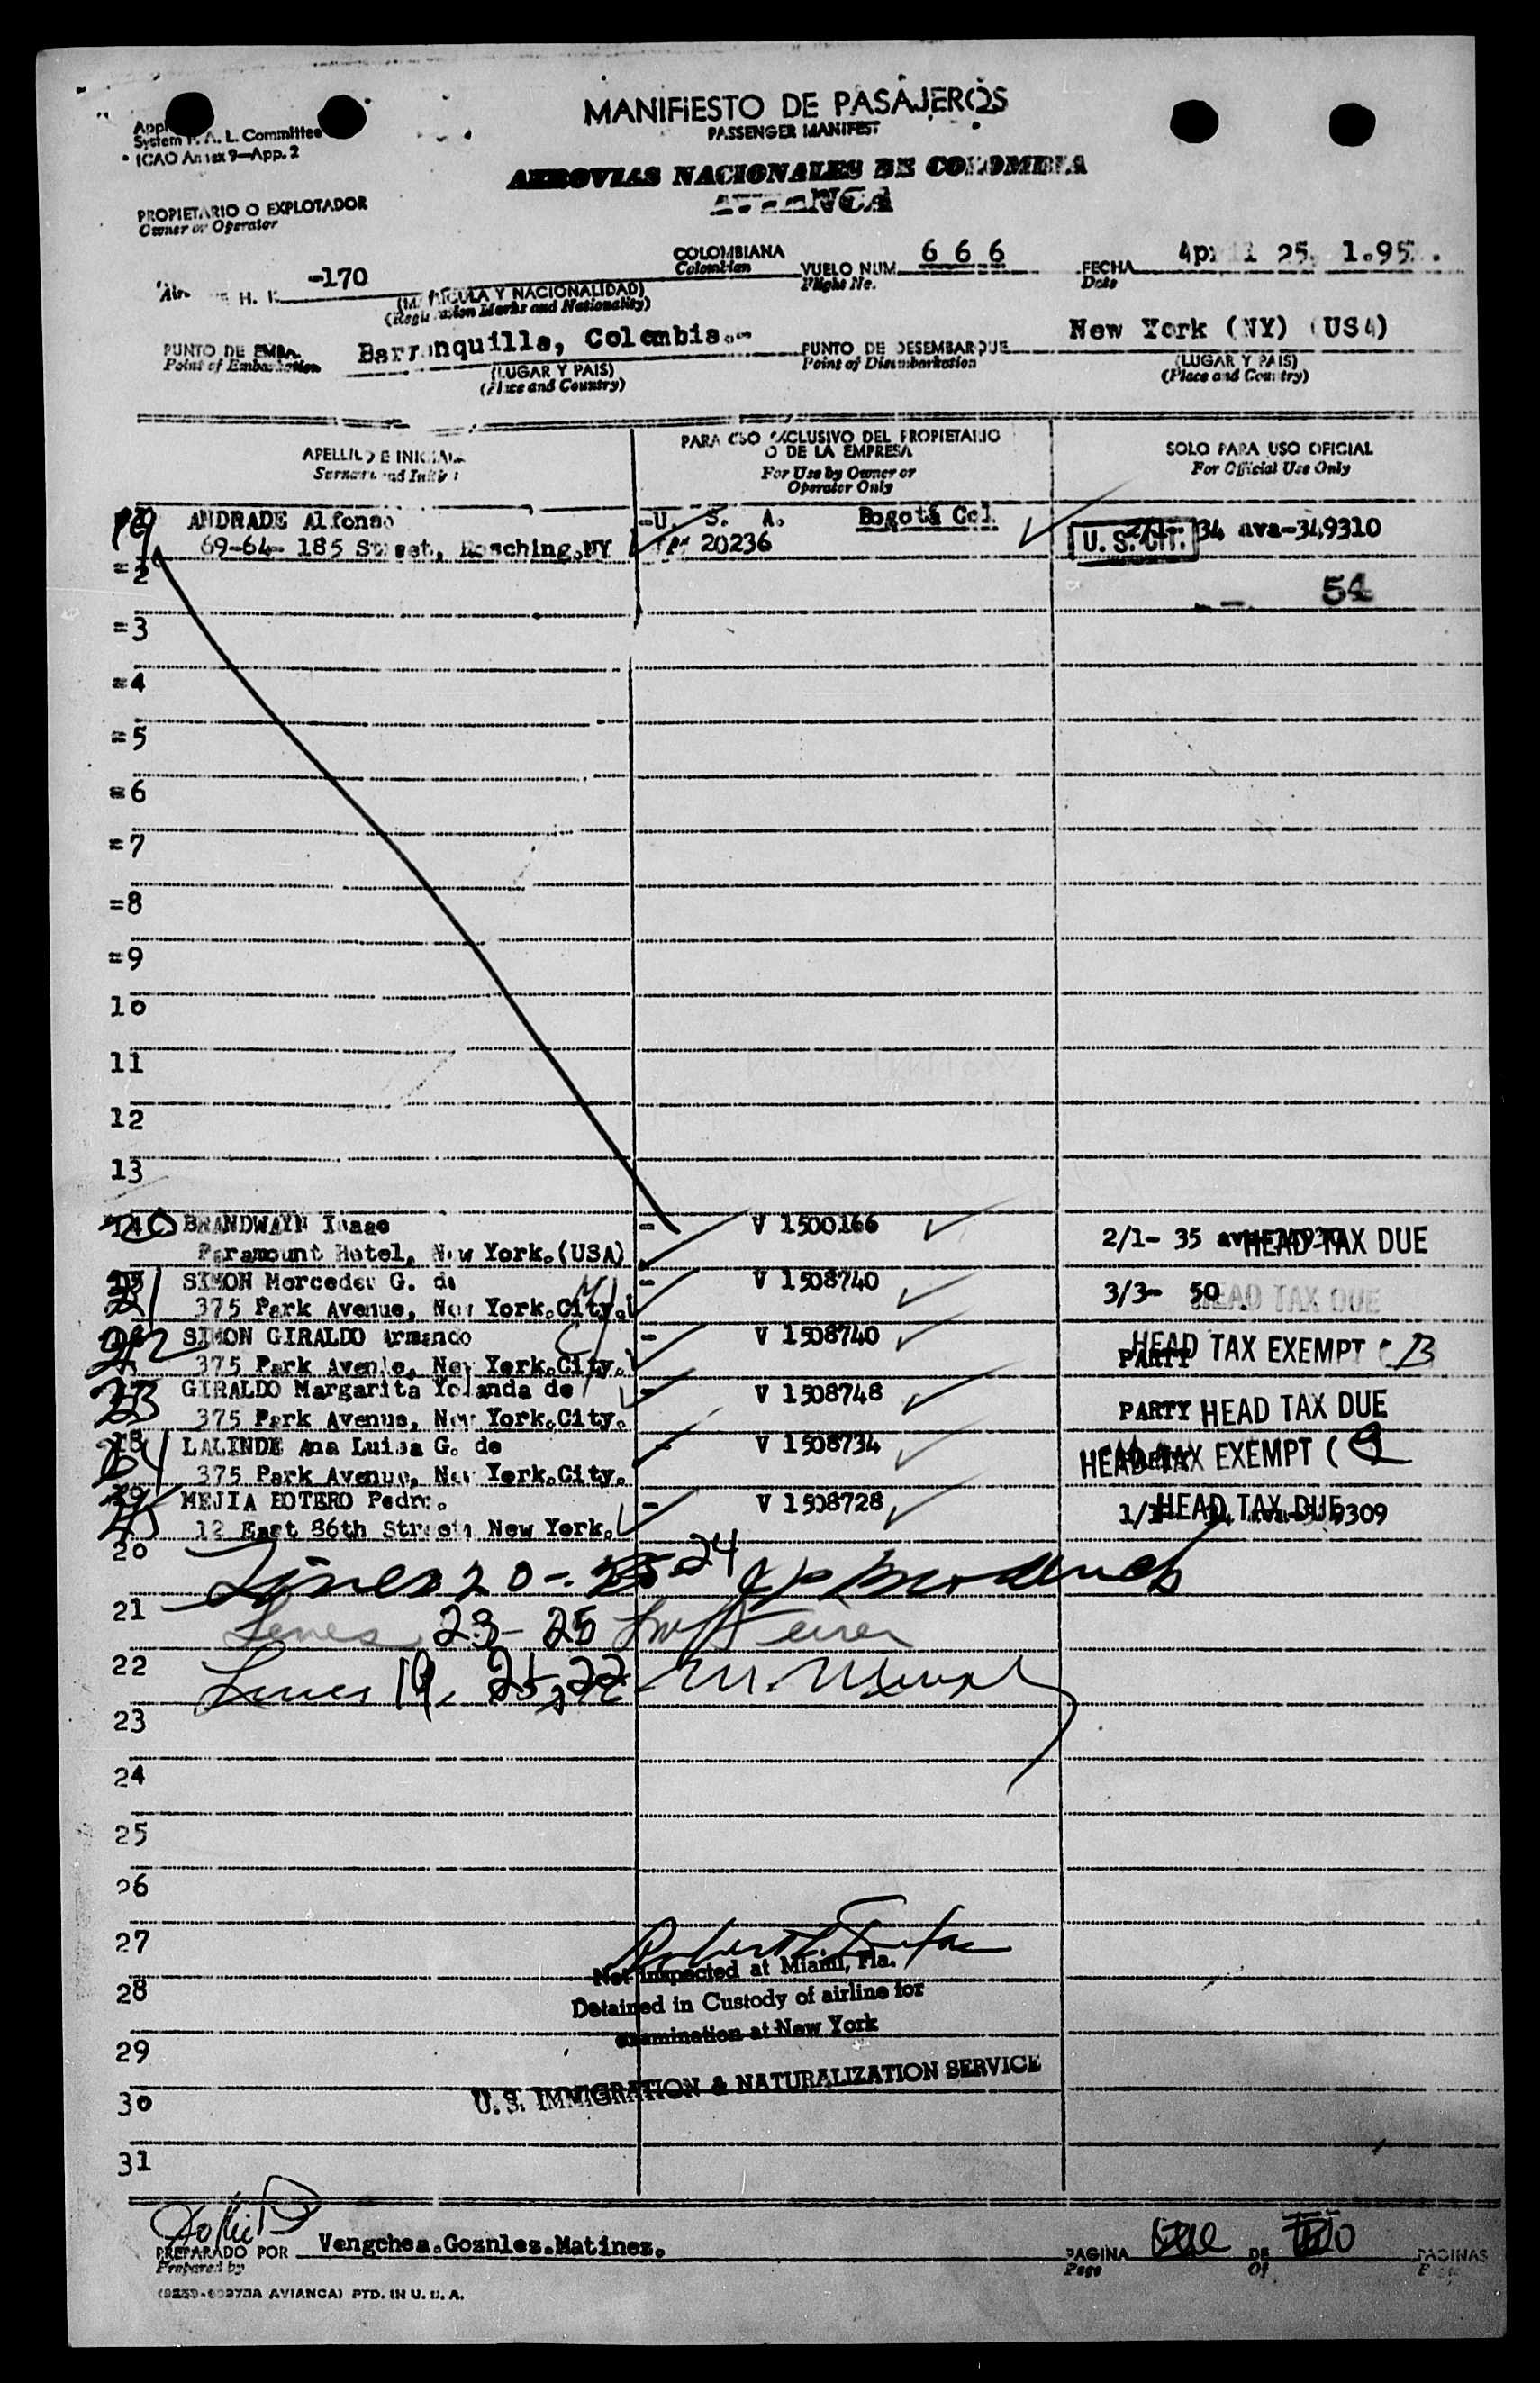 MANIFIESTO DE PASAJEROS
PASSENGER MANIFEST
System F. A. L. Committee
ICAO Annex 9—App. 2
AEROVIAS NACIONALES DE COLOMBIA
AVIANCA
PROPIETARIO O EXPLOTADOR
Owner or Operator
COLOMBIANA
Colombian
VUELO NUM. 6 6 6
Flight No.
FECHA April 25, 1.95
Date
H. K. -170
(MATRICULA Y NACIONALIDAD)
(Registration Marks and Nationality)
PUNTO DE EMBA. Barranquilla, Colombia.-
Point of Embarkation
(LUGAR Y PAIS)
(Place and Country)
PUNTO DE DESEMBARQUE New York (NY) (USA)
Point of Disembarkation
(LUGAR Y PAIS)
(Place and Country)
APELLIDO E INICIAL
Surname and Initial
PARA USO EXCLUSIVO DEL PROPIETARIO
O DE LA EMPRESA
For Use by Owner or
Operator Only
SOLO PARA USO OFICIAL
For Official Use Only
19 ANDRADE Alfonso -U. S. A. Bogotá Col.
69-64- 185 Street, NY 20236 U. S. CIT. 34 ava-349310
=2 54
=3
=4
=5
=6
=7
=8
=9
10
11
12
13
20 BRANDWAYN Isaac - V 1500166
Paramount Hotel, New York.(USA) 2/1- 35 HEAD TAX DUE
21 SIMON Mercedes G. de - V 1508740
375 Park Avenue, New York.City. 3/3- 50 HEAD TAX DUE
22 SIMON GIRALDO Armando - V 1508740
375 Park Avenle, New York.City. PARTY HEAD TAX EXEMPT B
23 GIRALDO Margarita Yolanda de - V 1508748
375 Park Avenue, New York.City. PARTY HEAD TAX DUE
24 LALINDE Ana Luisa G. de - V 1508734
375 Park Avenue, New York.City. HEAD TAX EXEMPT (
25 MEJIA BOTERO Pedro. - V 1508728
12 East 86th Street, New York. HEAD TAX DUE 9309
20 Lines 20-24
21 Lines 23-25
22 Lines 19, 21, 22
23
24
25
26
27
Not inspected at Miami, Fla.
28
Detained in Custody of airline for
examination at New York
29
U. S. IMMIGRATION & NATURALIZATION SERVICE
30
31
PREPARADO POR Vengchea.Goznles.Matinez.
Prepared by
PAGINA DE PAGINAS
Page Of
AVIANCA) PTD. IN U. S. A.